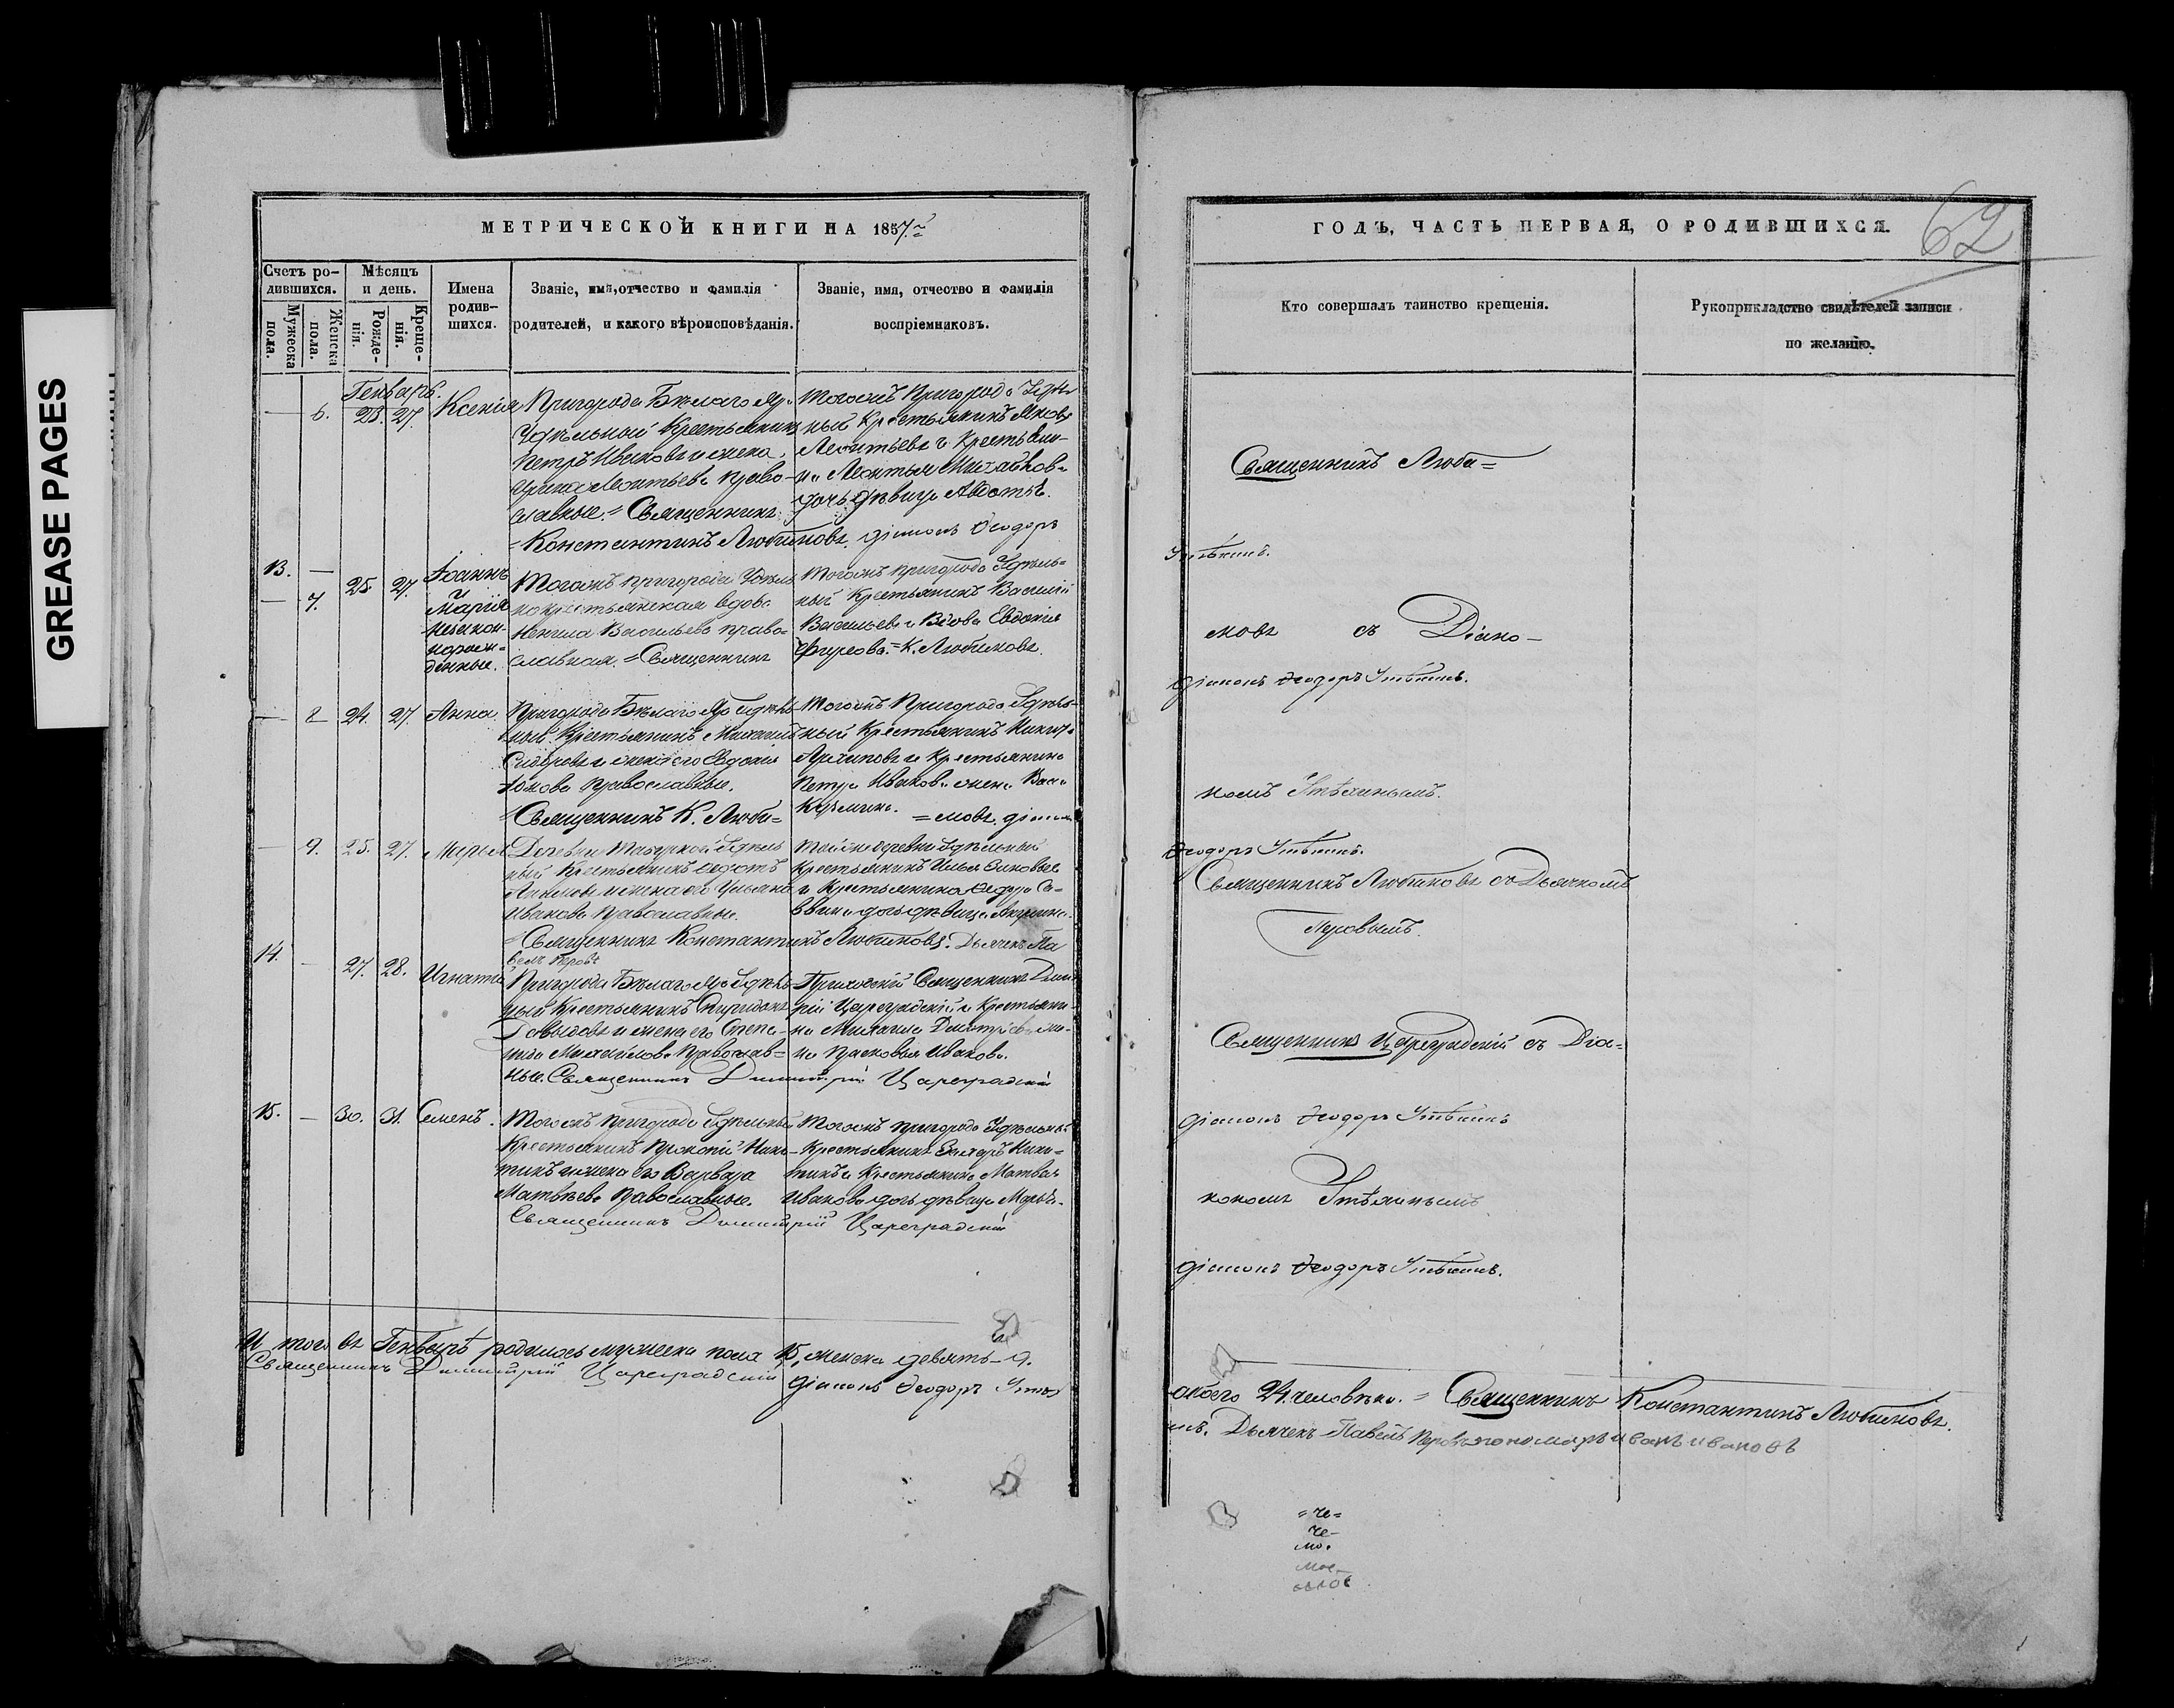 GREASE PAGES
62
МЕТРИЧЕСКОЙ КНИГИ НА 1857.
Счетъ ро-
дившихся.
Мужеска
пола.
Женска
пола.
Мѣсяцъ
и день.
Рожде-
нія.
Креще-
нія.
Имена
родив-
шихся.
Званіе, имя, отчество и фамилія
родителей, и какого вѣроисповѣданія.
Званіе, имя, отчество и фамилія
воспріемниковъ.
Генварь.
— 6. 23. 27. Ксенія
Пригорода Бѣлаго Яра
Удѣльный Крестьянинъ
Петръ Ивановъ и жена
Леонтьева право-
славные. = Священникъ
= Константинъ Любимовъ. діаконъ Ѳеодоръ
Тогожъ Пригорода Удѣль
ный Крестьянинъ Яковъ
Леонтьевъ и Крестьяни-
на Леонтья Михайлова
дочь дѣвица
13. —
— 7. 25. 27.
Іоаннъ
и
Марія
незакон-
норож-
денные.
Тогожъ пригорода Удѣль
нокрестьянская вдова
Васильева право-
славная. = Священникъ
Тогожъ пригорода Удѣль-
ный Крестьянинъ Василій
Васильевъ и Вдова Евдокія
= К. Любимовъ.
— 8 24. 27. Анна.
Пригорода Бѣлаго Яра Удѣль
ный Крестьянинъ Михаилъ
Сидоровъ и жена его Евдокія
Православные.
= Священникъ К. Люби=
Тогожъ Пригорода Удѣль-
ный Крестьянинъ Никита
Архиповъ и Крестьянина
Петра Иванова жена
Кузмина.
= мовъ. діаконъ
— 9. 25. 27. Марья
Деревни Удѣль
ный Крестьянинъ Ѳедотъ
и жена его Ульяна
Иванова Православные.
= Священникъ Константинъ Любимовъ. Дьячекъ Па
велъ Перовъ
Тойже деревни Удѣльный
Крестьянинъ Илья Зиновьевъ
и Крестьянина Ѳедора Са-
ввина дочь дѣвица
14. — 27. 28. Игнатій
Пригорода Бѣлаго Яра Удѣль-
ный Крестьянинъ Спиридонъ
Давыдовъ и жена его Степа-
нида Михайлова Православ=
ные. Священникъ Димитрій Цареградскій
Приходскій Священникъ Димит
рій Цареградскій и Крестьяни-
на Михаила Дмитріева же-
на Прасковья Иванова.
15. — 30. 31. Семенъ.
Тогожъ пригорода Удѣльный
Крестьянинъ Прокопій Ники-
тинъ и жена его Варвара
Матвѣева Православные.
Священникъ Димитрій Цареградскій
Тогожъ пригорода Удѣльный
Крестьянинъ Захаръ Ники=
тинъ и Крестьянина Матвѣя
Иванова дочь дѣвица Марья.
И того въ Генварѣ родилось мужеска пола 15, женска девять — 9.
Священникъ Димитрій Цареградскій
діаконъ Ѳеодоръ
ГОДЪ, ЧАСТЬ ПЕРВАЯ, О РОДИВШИХСЯ.
Кто совершалъ таинство крещенія.
Рукоприкладство свидѣтелей записи
по желанію.
Священникъ Люби=
мовъ съ Діако-
діаконъ Ѳеодоръ
номъ
Ѳеодоръ
Священникъ Любимовъ съ Дьячкомъ
Перовымъ.
Священникъ Цареградскій съ Діа=
діаконъ Ѳеодоръ
кономъ
діаконъ Ѳеодоръ
обоего 24. человѣка. = Священникъ Константинъ Любимовъ.
Дьячекъ Павелъ Перовъ пономарь Иванъ Ивановъ
= че=
че-
мо.
мое_